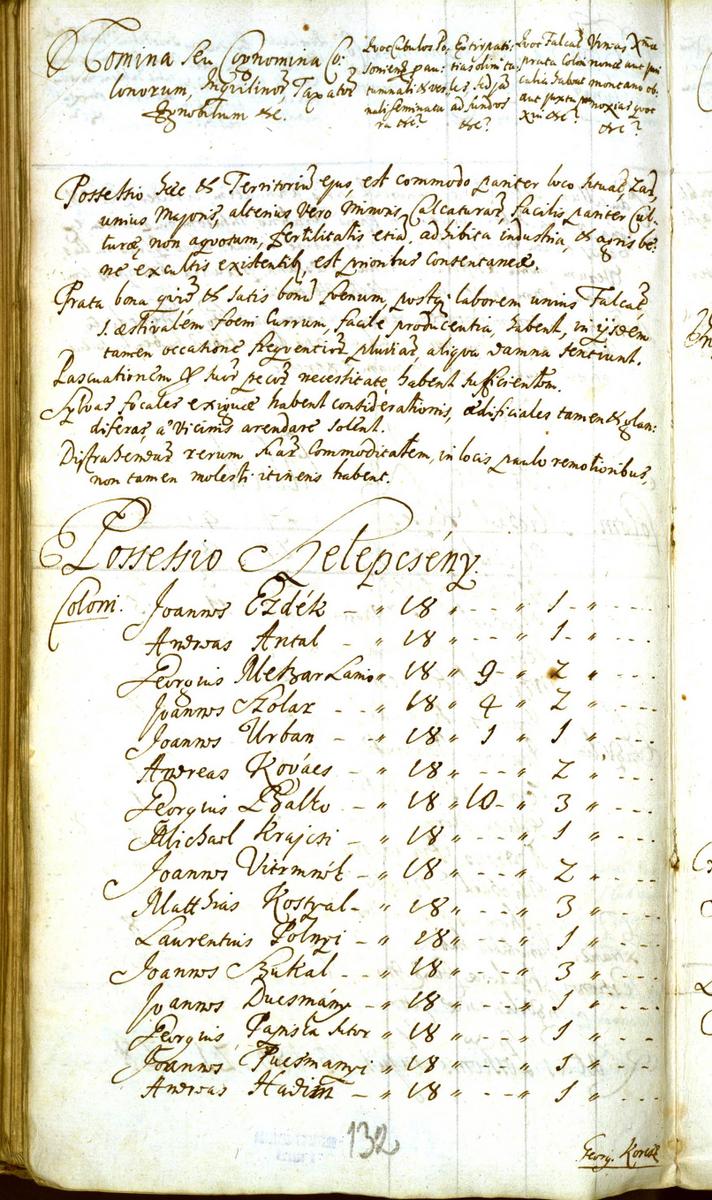 Nomina seu Cognomina Co:
lonorum, Inquilinor, Taxator
Ignobilium &c.
Quot Cubulos Po
soniens: au:
tumnali & ver
nali seminatu
ra &c?
Extirpati:
tias olim
ad fundos
&c?
Quot Falcat
prata Coloni
habeat
aut juxta
Xm &c?
Vineas
nonae aut
montano ob
noxias quot
&c?
Possessio haec & Territoriu ejus, est commodo pariter loco situat,
unius Majoris, alterius vero minoris, Calcaturar, facilis pariter Cul:
turae, non aquosum, fertilitatis etia, adhibita industria, & agris be:
ne excultis existentib, est prioribus consentaneae.
Prata bona & satis bonu foenum, postq laborem unius Falcat,
1. aestivalem foeni Currum, facile producentia, habent, in ijsdem
tamen occatione frequentior pluviar, aliqua damna sentiunt.
Pascuationem & suor pecor necessitate habent sufficientem.
Sylvas focales exiguae habent considerationis, aedificiales tamen & glan:
diferas, a' Vicinis arendare solent.
Distrahendar rerum suar Commoditatem, in locis paulo remotioribus,
non tamen molesti itineris habent.
Possessio Zelepcsény
Coloni. Joannes Ezdék - " 18 " - - " 1 - " - - -
Andreas Antal - " 18 " - - " 1 - " - - -
Georgius Meszar Lanio " 18 " 9 - " 2 " - - -
Joannes Szolar - - " 18 " 4 " 2 " - - -
Joannes Urban - " 18 " 1 " 1 " - - -
Andreas Kovács - " 18 " - - " 2 " - - -
Georgius - " 18 " 10 - " 3 " - - -
Michael Krajcsi - " 18 " - - " 1 " - - -
Joannes - " 18 " - - " 2 " - - -
Matthias Kostyal - " 18 " - - " 3 " - - -
Laurentius Polnyi - " 18 " - - " 1 " - - -
Joannes - - " 18 " - - " 3 " - - -
Joannes Ducsmány - " 18 " - - " 1 " - - -
Georgius " 18 " - - " 1 " - - -
Joannes " 18 " - - " 1 " - - -
Andreas - " 18 " - - " 1 " - - -
132
Georg.